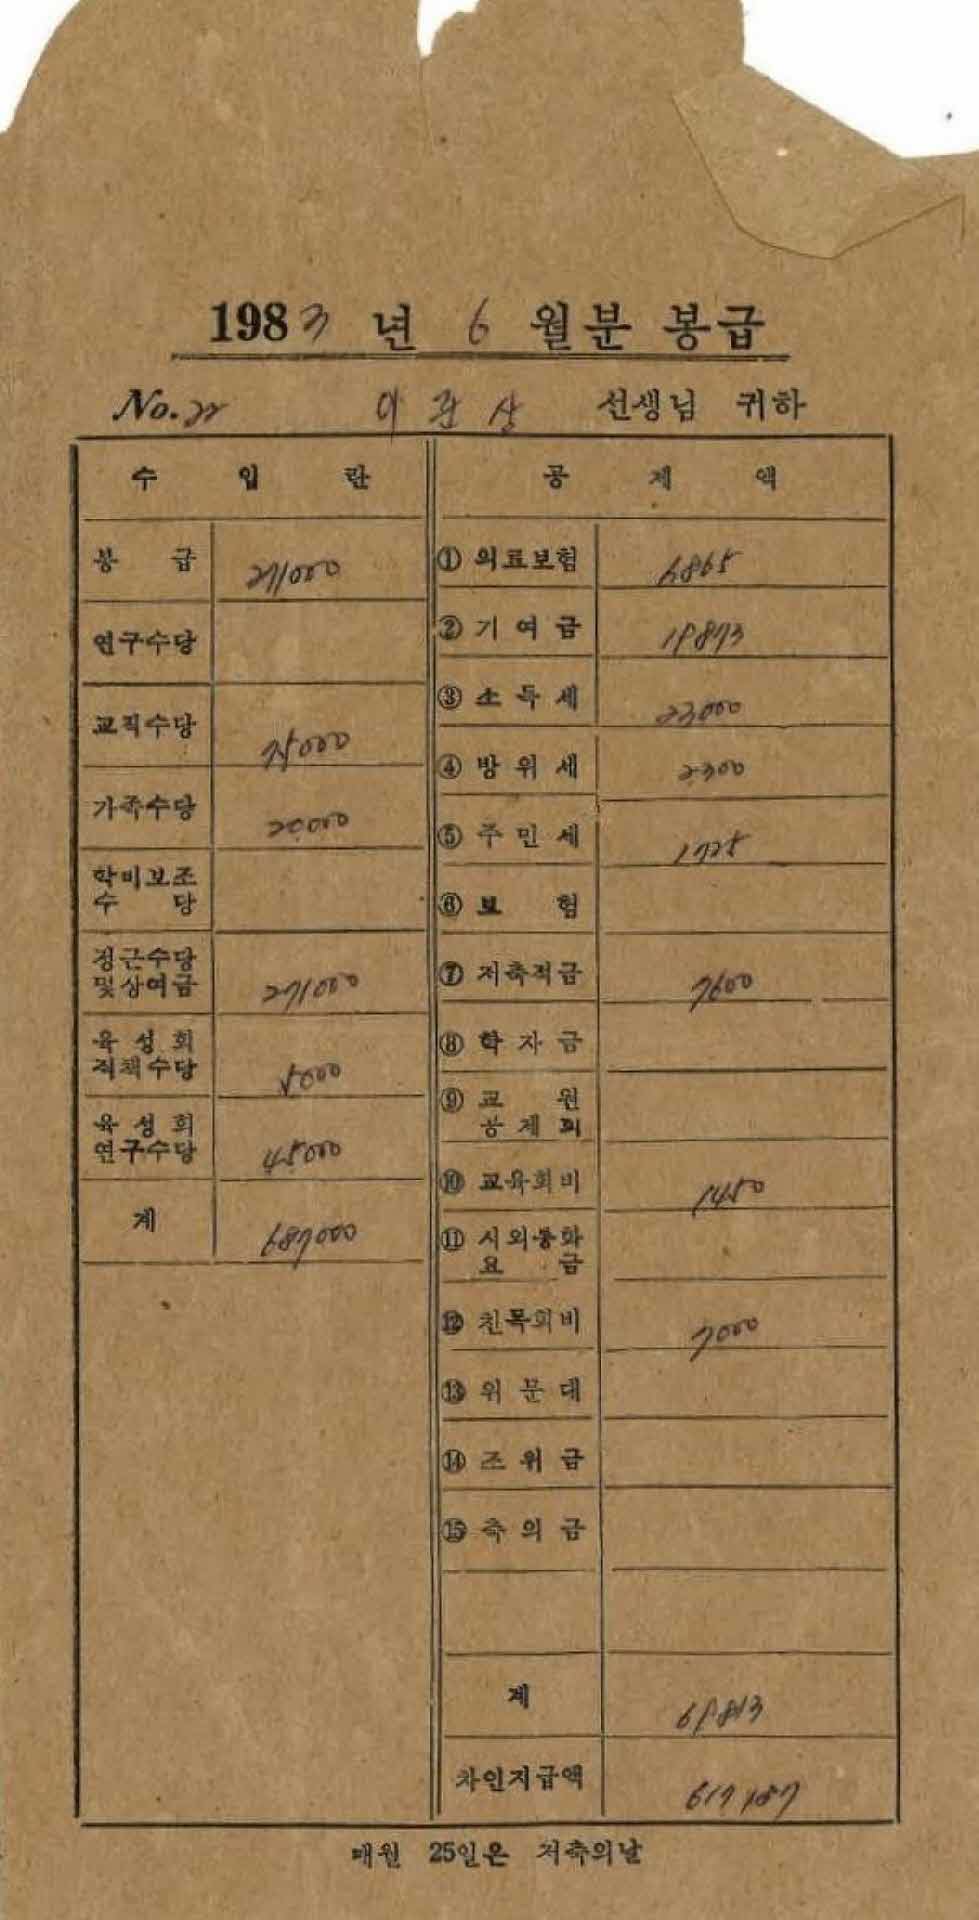 1983 년 6 월분 봉급
No.22 이관상 선생님 귀하
수 입 란
봉 급 271000
연구수당
교직수당 75000
가족수당 20000
학비보조
수 당
정근수당
및상여금 271000
육 성 회
직책수당 5000
육 성 회
연구수당 45000
계 687000
공 제 액
① 의료보험 6865
② 기 여 금 19873
③ 소 득 세 23000
④ 방 위 세 2300
⑤ 주 민 세 1725
⑥ 보 험
⑦ 저축적금 7600
⑧ 학 자 금
⑨ 교 원
공 제 회
⑩ 교육회비 1450
⑪ 시외통화
요 금
⑫ 친목회비 7000
⑬ 위 문 대
⑭ 조 위 금
⑮ 축 의 금
계 69813
차인지급액 617187
매월 25일은 저축의날